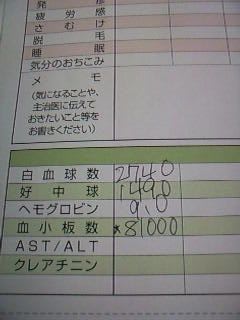 発疹
疲労感
さむけ
脱毛
睡眠
気分のおちこみ
メモ
(気になることや、
主治医に伝えて
おきたいこと等を
お書きください)
白血球数 2740
好中球 1490
ヘモグロビン 9.0
血小板数 *81000
AST/ALT
クレアチニン